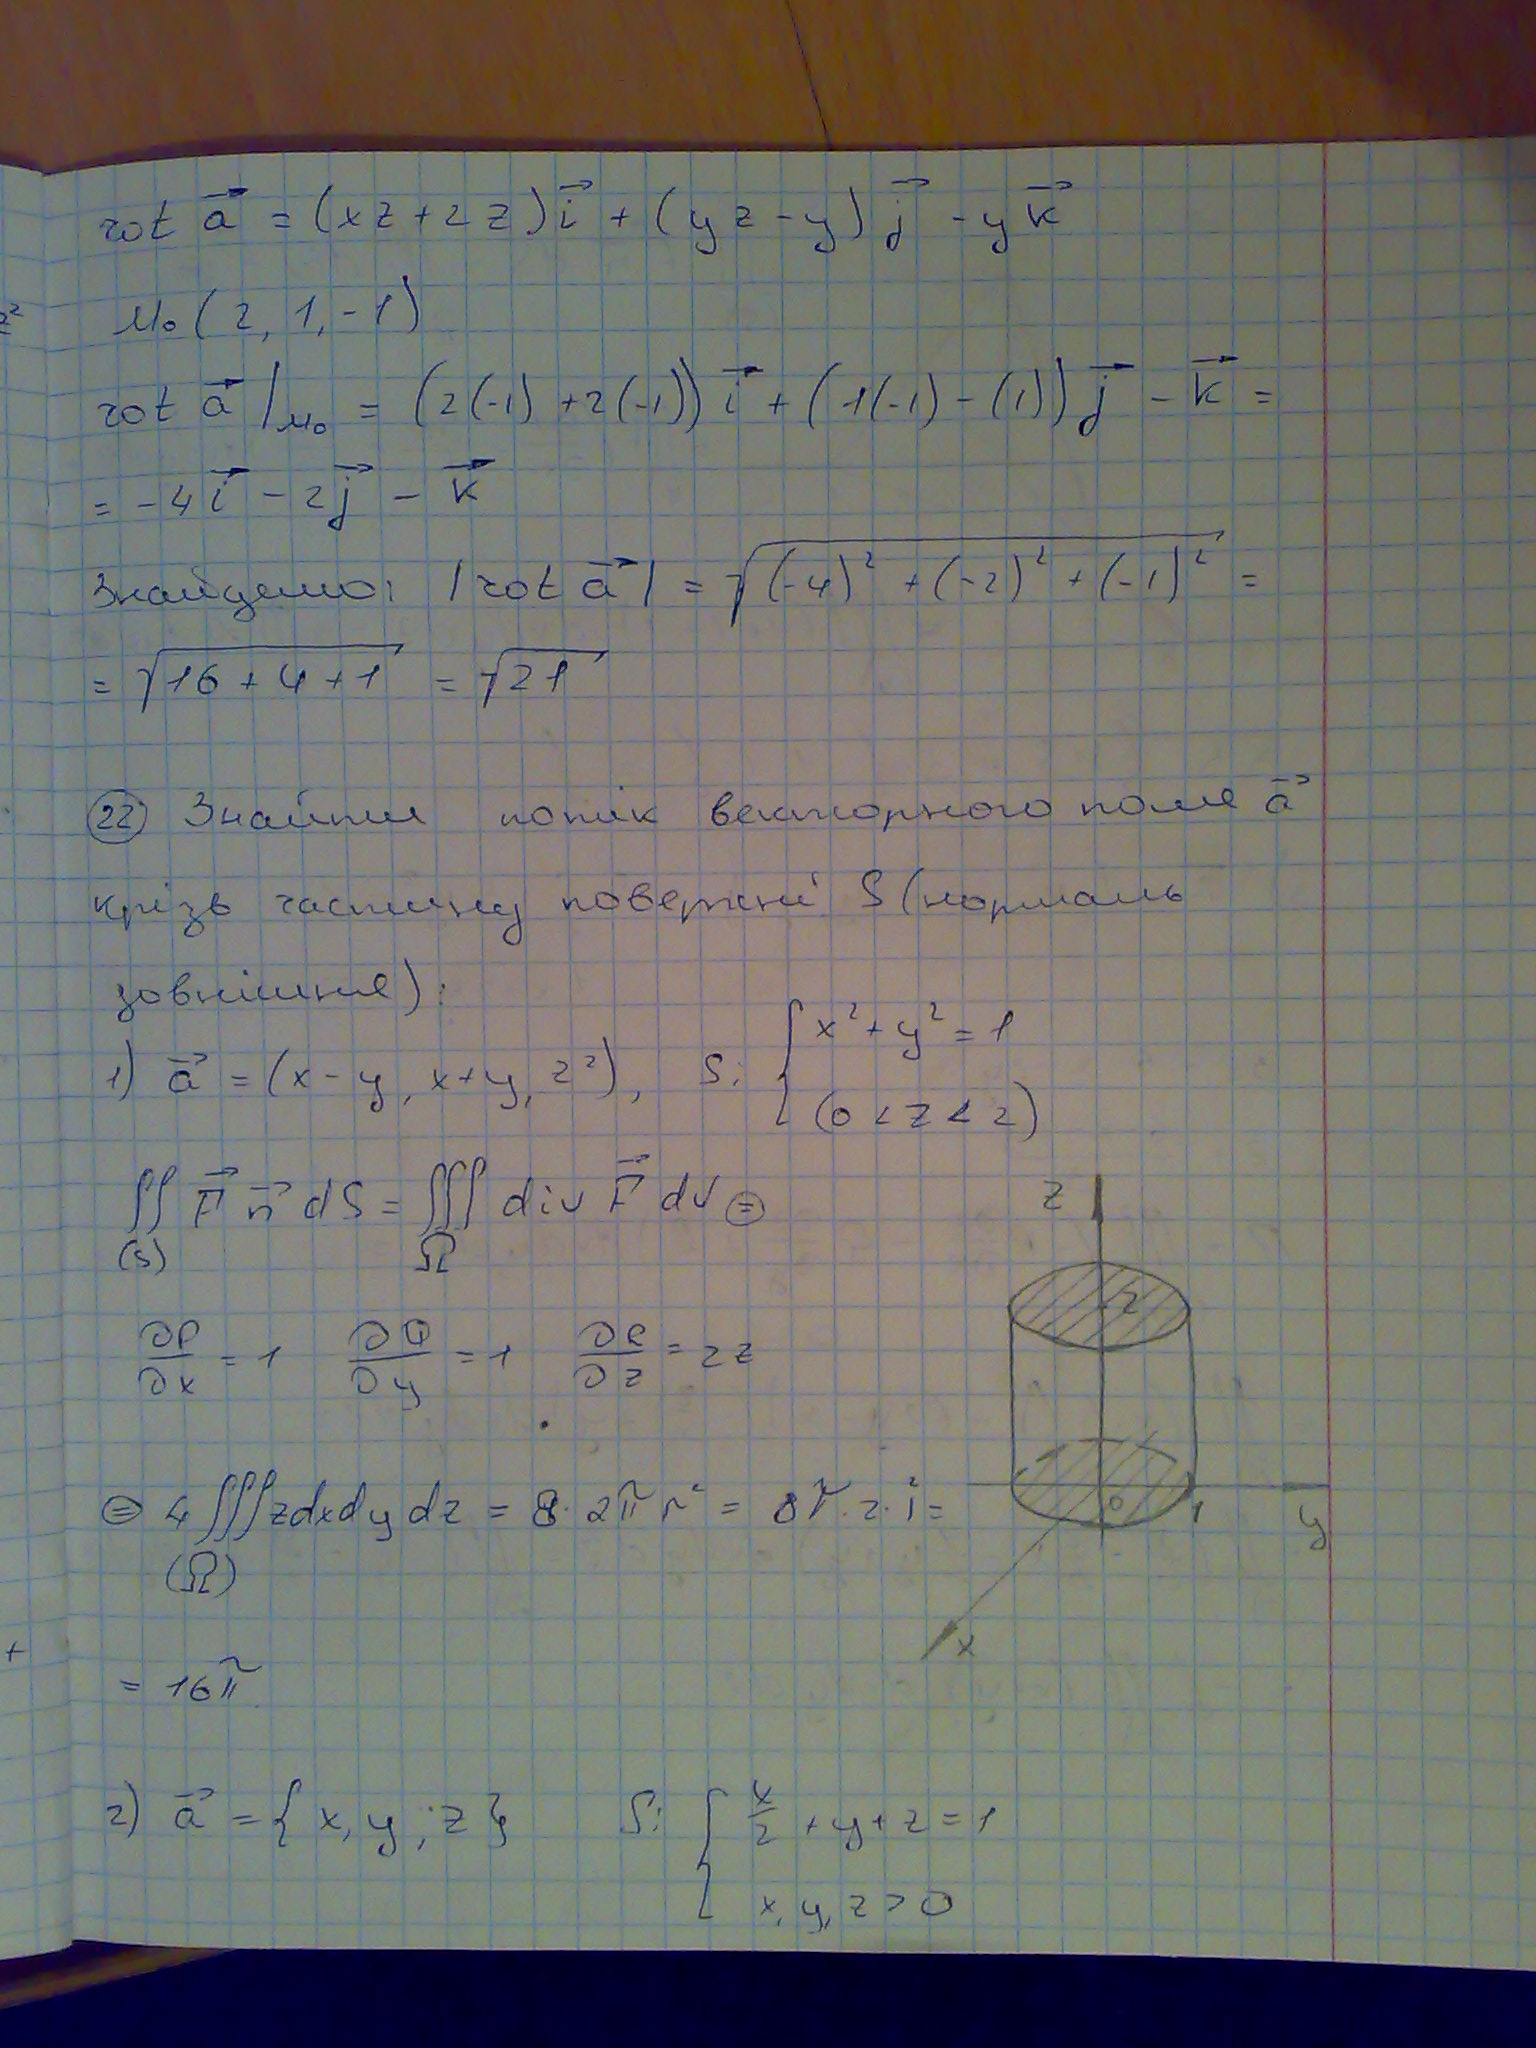 z²
rot a⃗ = (xz+2z)i⃗ + (yz-y)j⃗ - yk⃗
M₀(2, 1, -1)
rot a⃗ |M₀ = (2(-1)+2(-1))i⃗ + (1(-1)-(1))j⃗ - k⃗ =
= -4i⃗ - 2j⃗ - k⃗
Знайдемо: |rot a⃗| = √((-4)²+(-2)²+(-1)²) =
= √(16+4+1) = √21
22 Знайти потік векторного поля a⃗
крізь частину поверхні S (нормаль
зовнішня):
1) a⃗ = (x-y, x+y, z²), S: { x²+y²=1
(0<z<2)
∬(S) F⃗ n⃗ dS = ∭Ω div F⃗ dV ⊜
∂P/∂x = 1 ∂Q/∂y = 1 ∂R/∂z = 2z
⊜ 4∭(Ω) z dx dy dz = 8·2πr² = 8π·2·1² =
= 16π
z 2 0 1 y x
+
2) a⃗ = {x, y, z} S: { x/2 + y + z = 1
x, y, z > 0